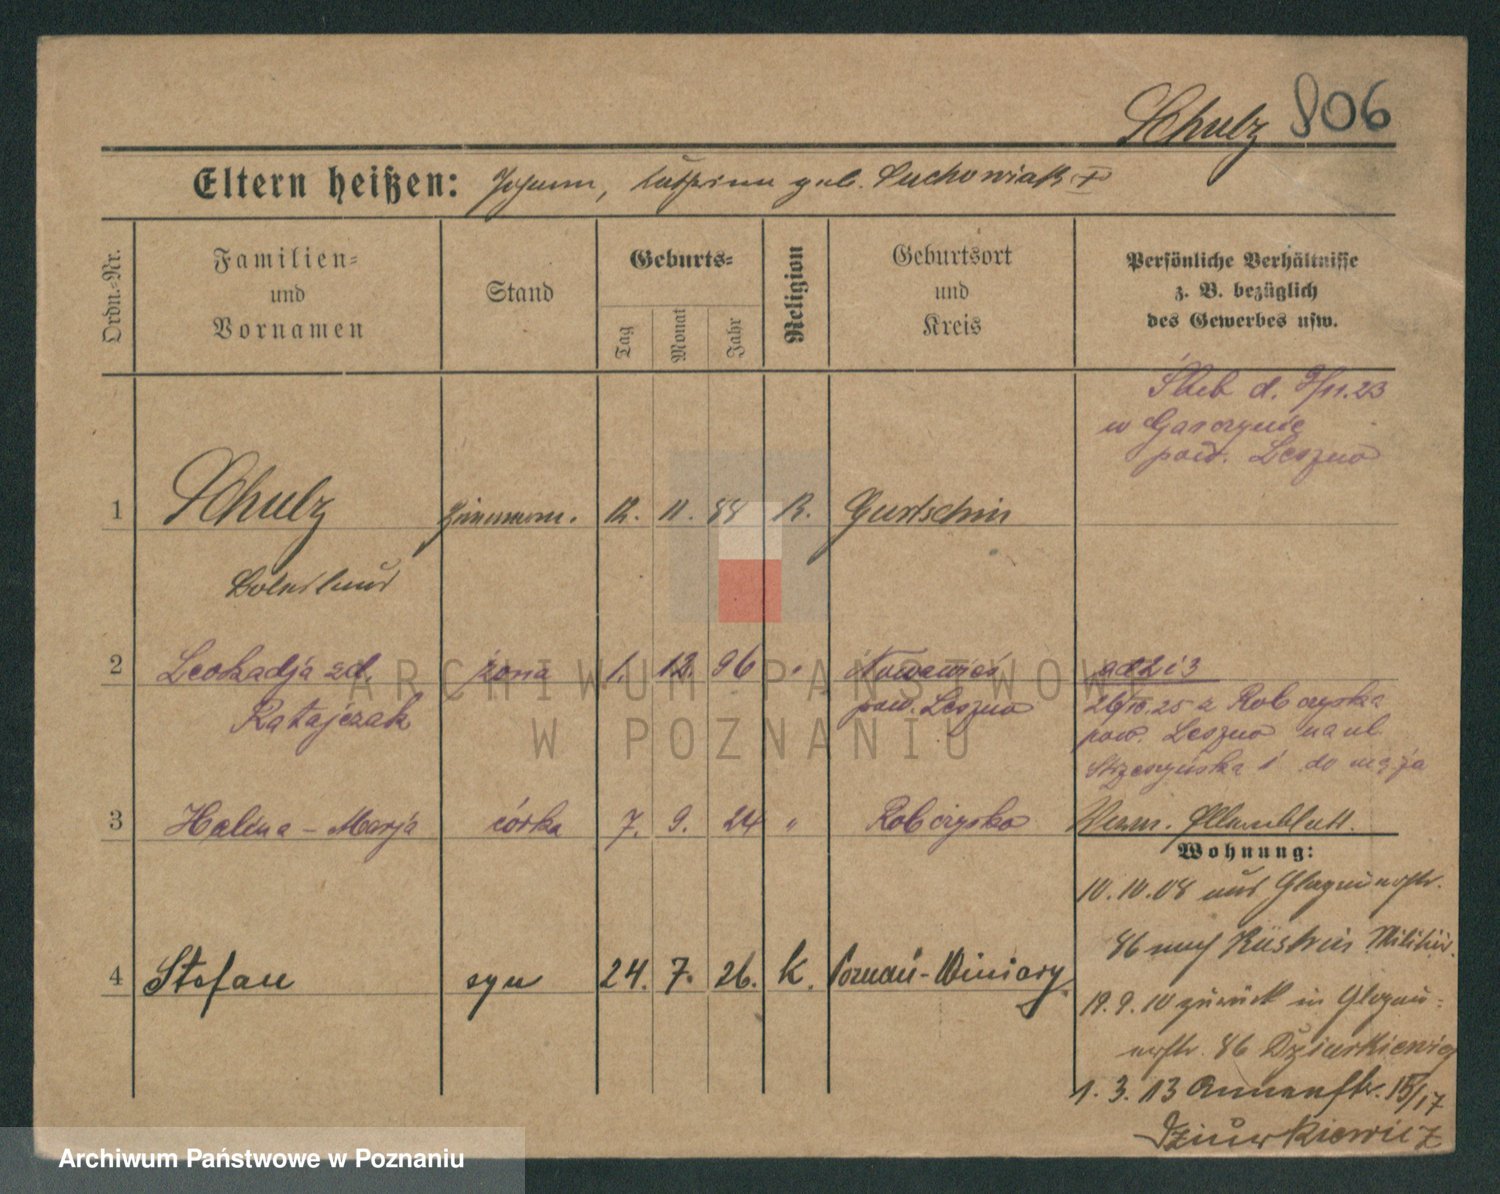 Schulz 806
Eltern heißen: Johann, Katharina geb. Suchowiak
Ordn.-Nr.
Familien-
und
Vornamen
Stand
Geburts-
Tag
Monat
Jahr
Religion
Geburtsort
und
Kreis
Persönliche Verhältnisse
z. B. bezüglich
des Gewerbes usw.
Ślub d. 9/11.23
w
pow. Leszno
1 Schulz Zimmerm. 12. 11. 88 K. Gurtschin
2 Leokadja zd. żona 1. 12. 96 " Nowawieś
Ratajczak pow. Leszno
26/10.25 z Robczyska
pow. Leszno na ul.
Strzeszyńska 1 do męża
3 Halina - Marja córka 7. 9. 24 " Robczysko
Wohnung:
10.10.08 aus Glogauerstr.
86 nach Küstrin Militär.
4 Stefan syn 24. 7. 26. K. Poznań-Winiary
19.9.10 zurück in Glogau-
erstr. 86 Dziurkiewicz
1.3.13 Annenstr. 15/17
Dziurkiewicz
ARCHIWUM PAŃSTWOWE
W POZNANIU
Archiwum Państwowe w Poznaniu